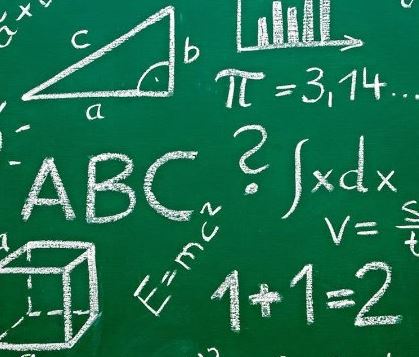 a x
c
b
a
π = 3,14...
ABC
?
∫xdx
v = s/t
a
E=mc²
1+1=2